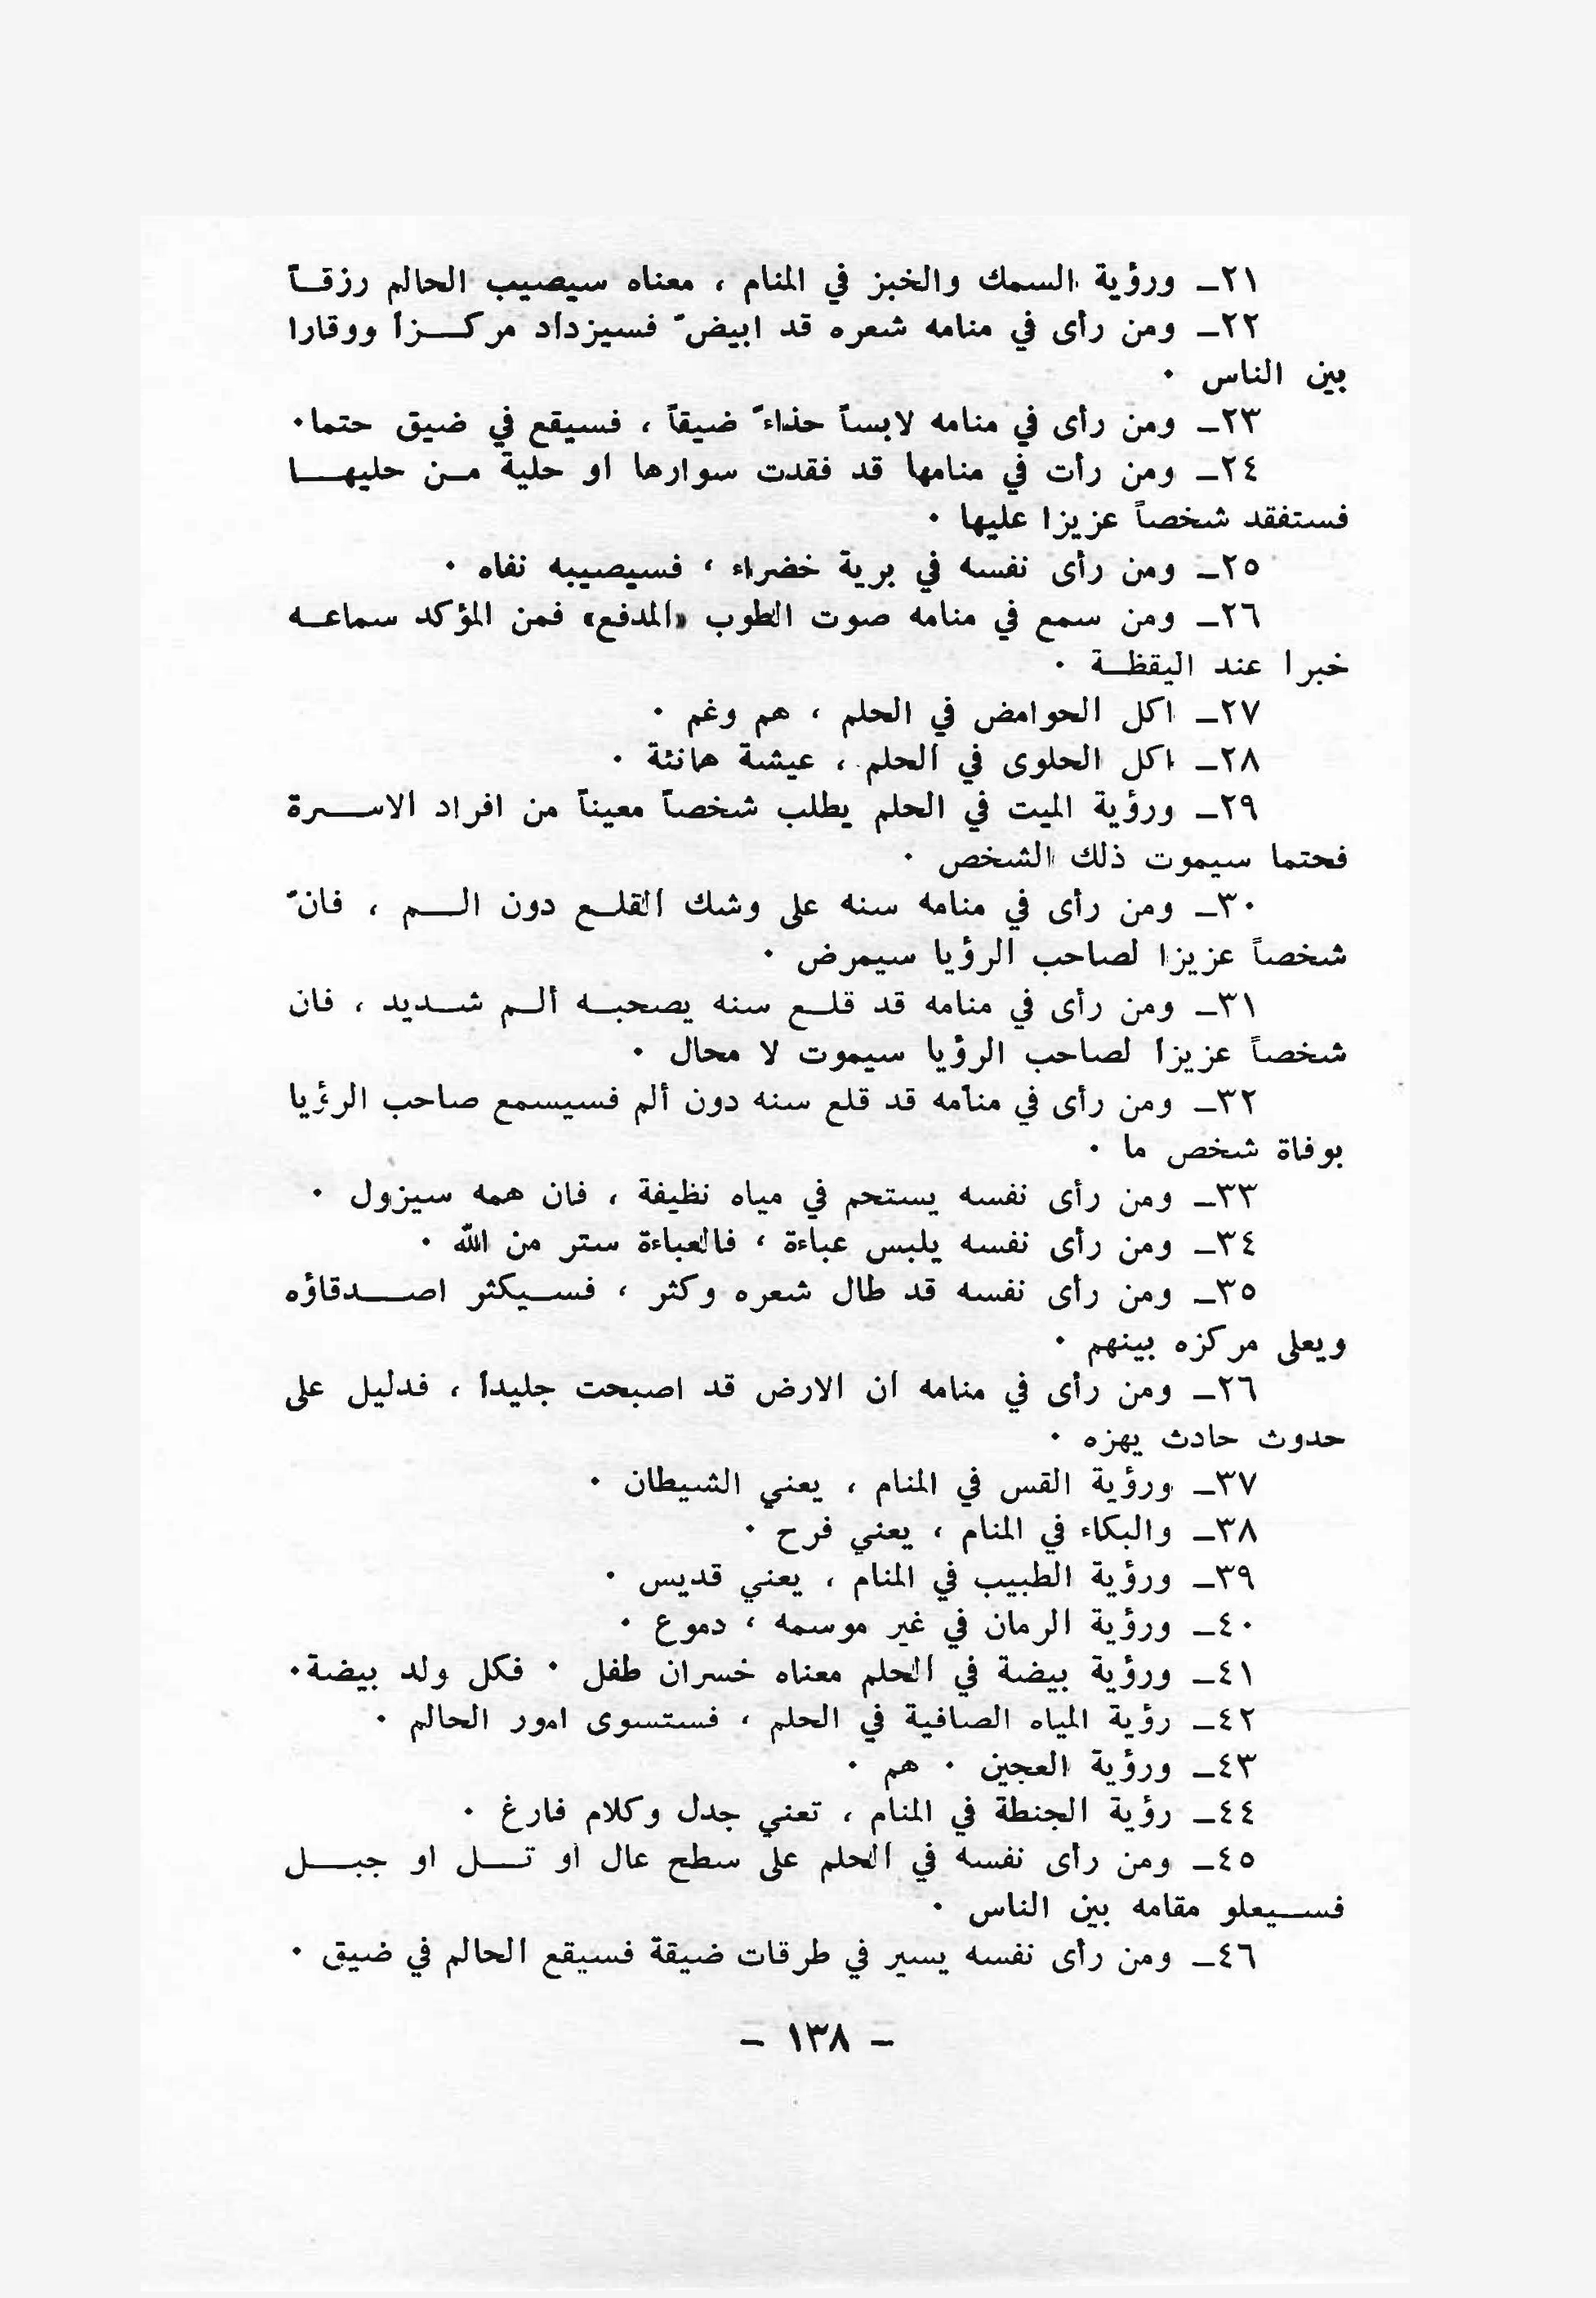 ٢١ـ ورؤية السمك والخبز في المنام ، معناه سيصيب الحالم رزقـاً
٢٢ـ ومن رأى في منامه شعره قد ابيضّ فسيزداد مركـــزاً ووقارا
بين الناس ٠
٢٣ـ ومن رأى في منامه لابساً حذاءً ضيقاً ، فسيقع في ضيق حتما٠
٢٤ـ ومن رأت في منامها قد فقدت سوارها او حلية مـن حليهـــا
فستفقد شخصاً عزيزا عليها ٠
٢٥ـ ومن رأى نفسه في برية خضراء ، فسيصيبه نفاه ٠
٢٦ـ ومن سمع في منامه صوت الطوب «المدفع» فمن المؤكد سماعـه
خبرا عند اليقظـة ٠
٢٧ـ اكل الحوامض في الحلم ، هم وغم ٠
٢٨ـ اكل الحلوى في الحلم ، عيشة هانئة ٠
٢٩ـ ورؤية الميت في الحلم يطلب شخصاً معيناً من افراد الاســرة
فحتما سيموت ذلك الشخص ٠
٣٠ـ ومن رأى في منامه سنه على وشك القلـع دون الــم ، فانّ
شخصاً عزيزا لصاحب الرؤيا سيمرض ٠
٣١ـ ومن رأى في منامه قد قلـع سنه يصحبـه ألـم شـديد ، فان
شخصاً عزيزاً لصاحب الرؤيا سيموت لا محال ٠
٣٢ـ ومن رأى في منامه قد قلع سنه دون ألم فسيسمع صاحب الرؤيا
بوفاة شخص ما ٠
٣٣ـ ومن رأى نفسه يستحم في مياه نظيفة ، فان همه سيزول ٠
٣٤ـ ومن رأى نفسه يلبس عباءة ، فالعباءة ستر من الله ٠
٣٥ـ ومن رأى نفسه قد طال شعره وكثر ، فسـيكثر اصــدقاؤه
ويعلى مركزه بينهم ٠
٢٦ـ ومن رأى في منامه ان الارض قد اصبحت جليداً ، فدليل على
حدوث حادث يهزه ٠
٣٧ـ ورؤية القس في المنام ، يعني الشيطان ٠
٣٨ـ والبكاء في المنام ، يعني فرح ٠
٣٩ـ ورؤية الطبيب في المنام ، يعني قديس ٠
٤٠ـ ورؤية الرمان في غير موسمه ، دموع ٠
٤١ـ ورؤية بيضة في الحلم معناه خسران طفل ٠ فكل ولد بيضة٠
٤٢ـ رؤية المياه الصافية في الحلم ، فستسوى امور الحالم ٠
٤٣ـ ورؤية العجين ٠ هم ٠
٤٤ـ رؤية الجنطة في المنام ، تعني جدل وكلام فارغ ٠
٤٥ـ ومن رأى نفسه في الحلم على سطح عال او تـــل او جبـــل
فســيعلو مقامه بين الناس ٠
٤٦ـ ومن رأى نفسه يسير في طرقات ضيقة فسيقع الحالم في ضيق ٠
– ١٣٨ –